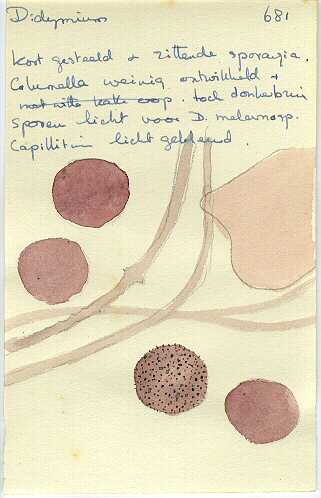 Didymium 681
kort gesteeld & zittende sporangia.
Columella weinig ontwikkeld &
met witte kalk erop. toch donkerbruin
sporen licht voor D. melanosp.
Capillitium licht gekleurd.